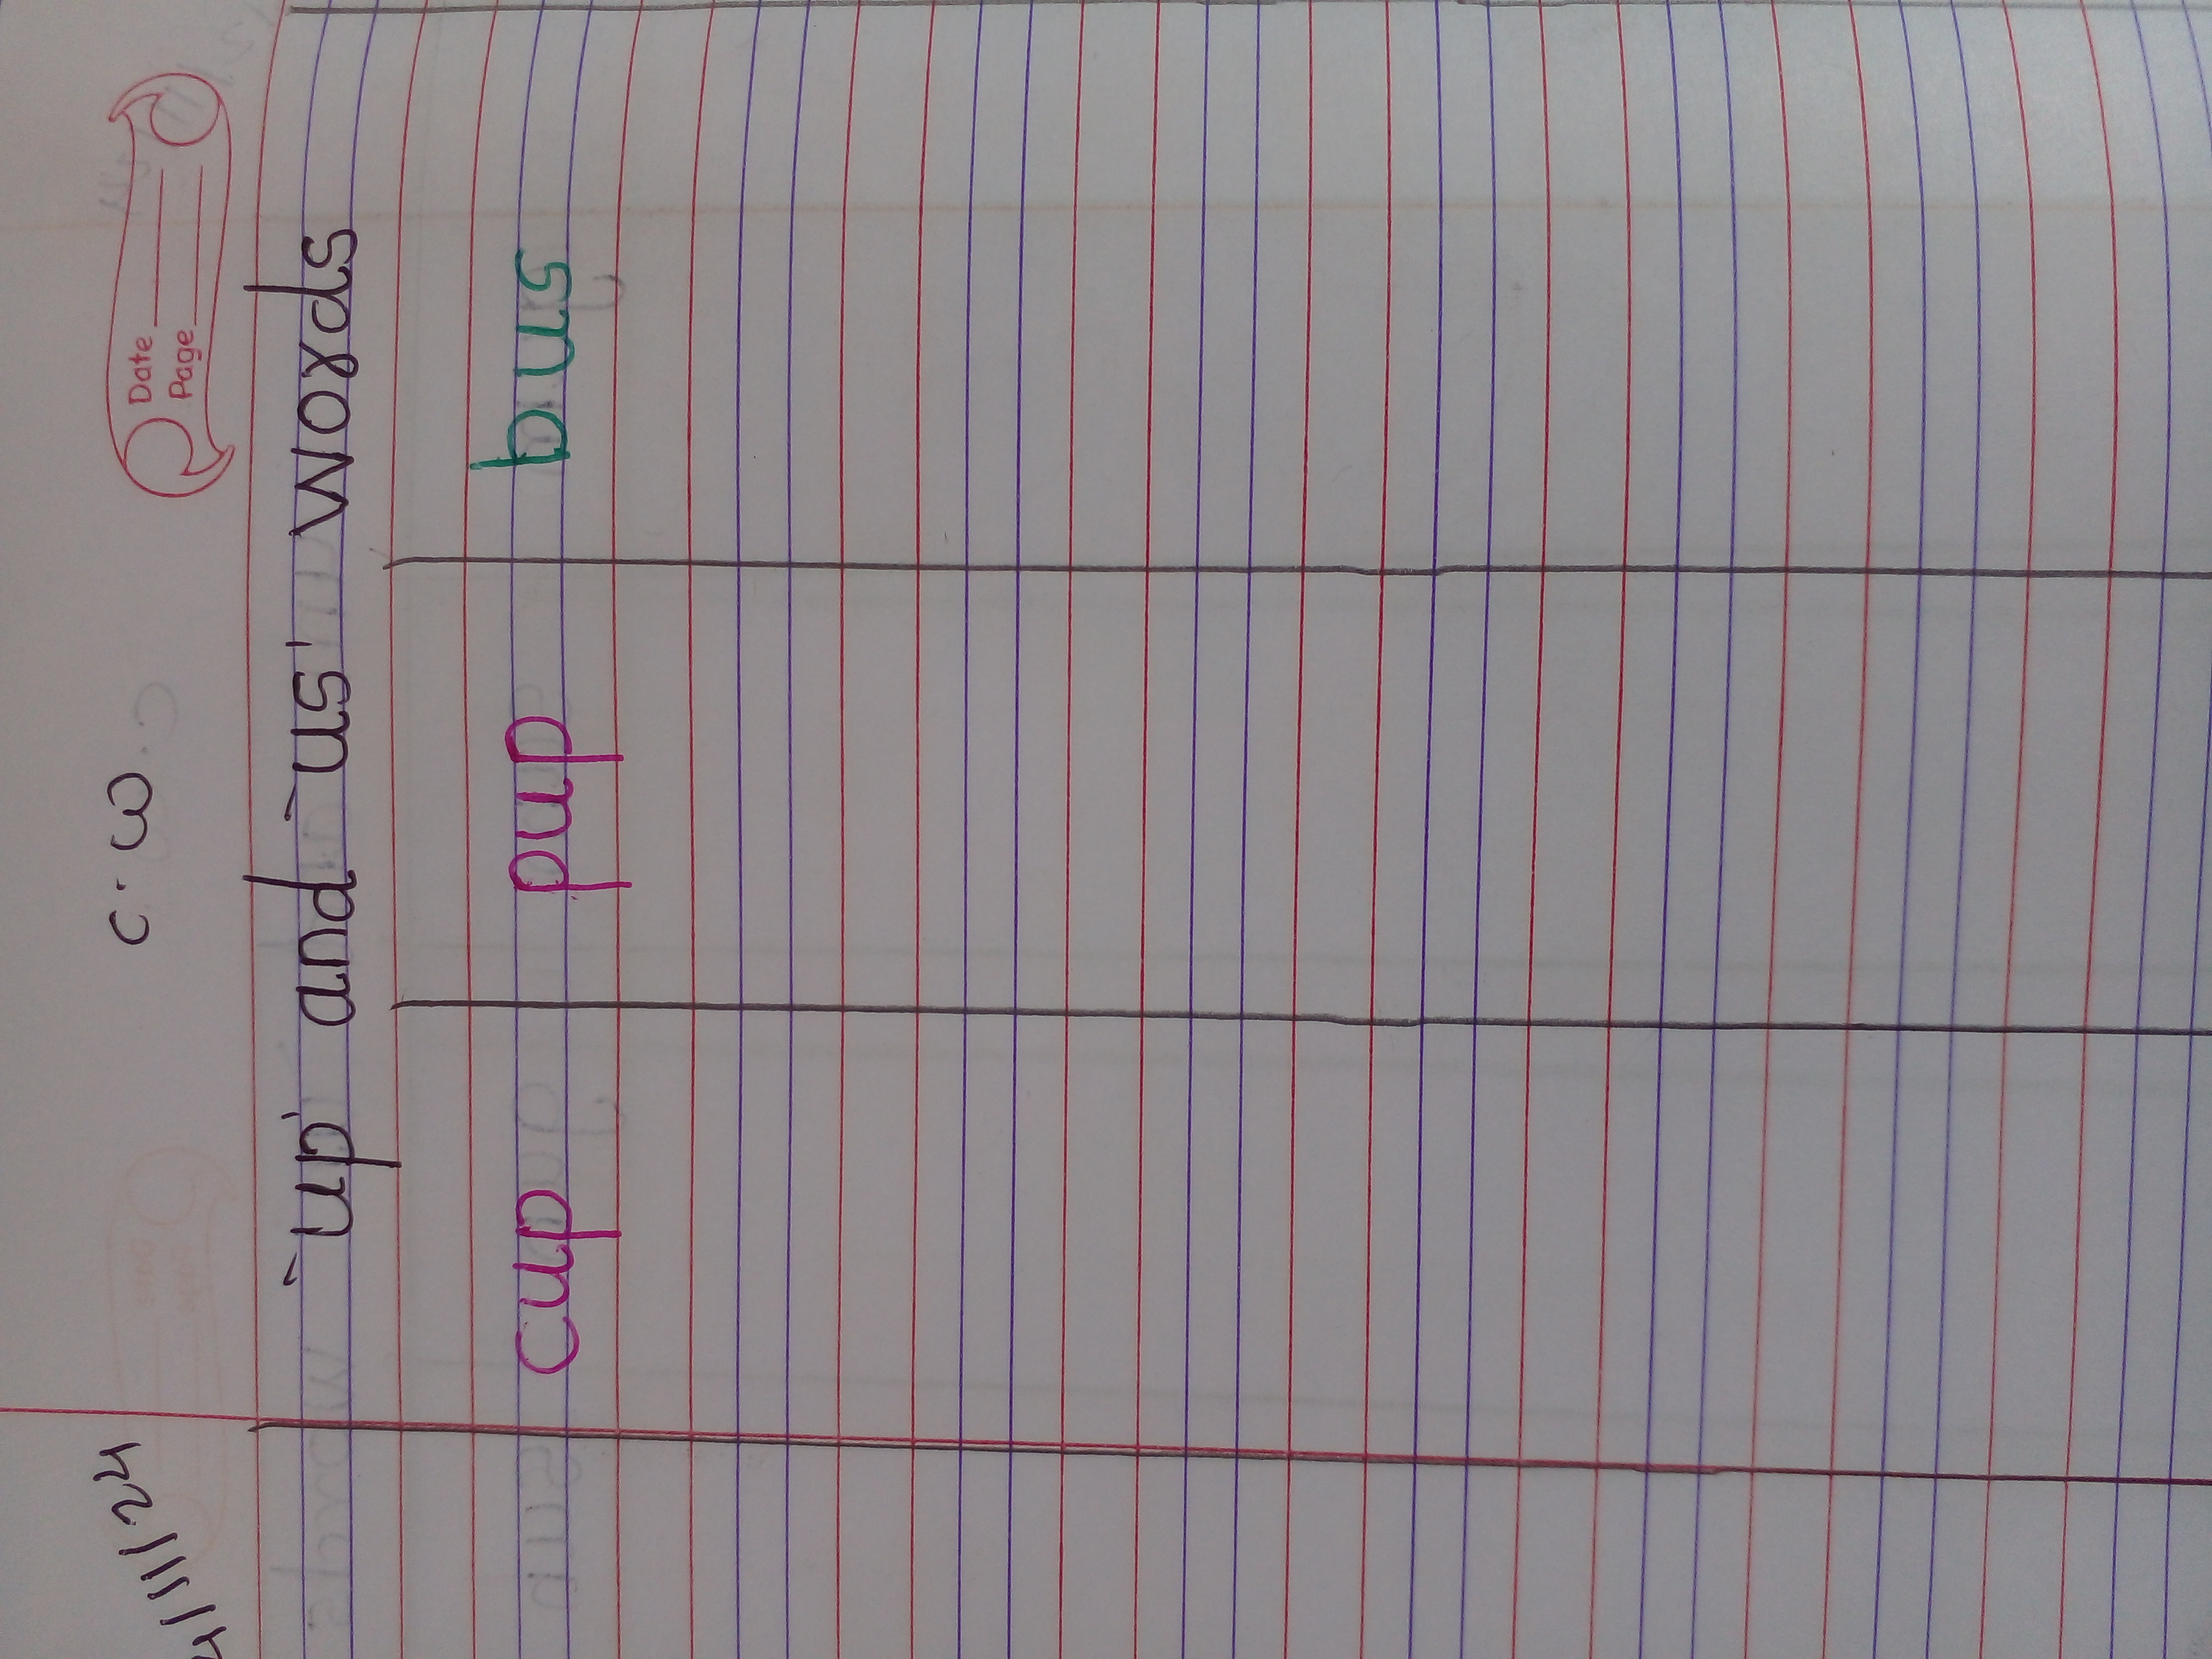 C.W.
Date
Page
'up' and 'us' words
cup pup bus